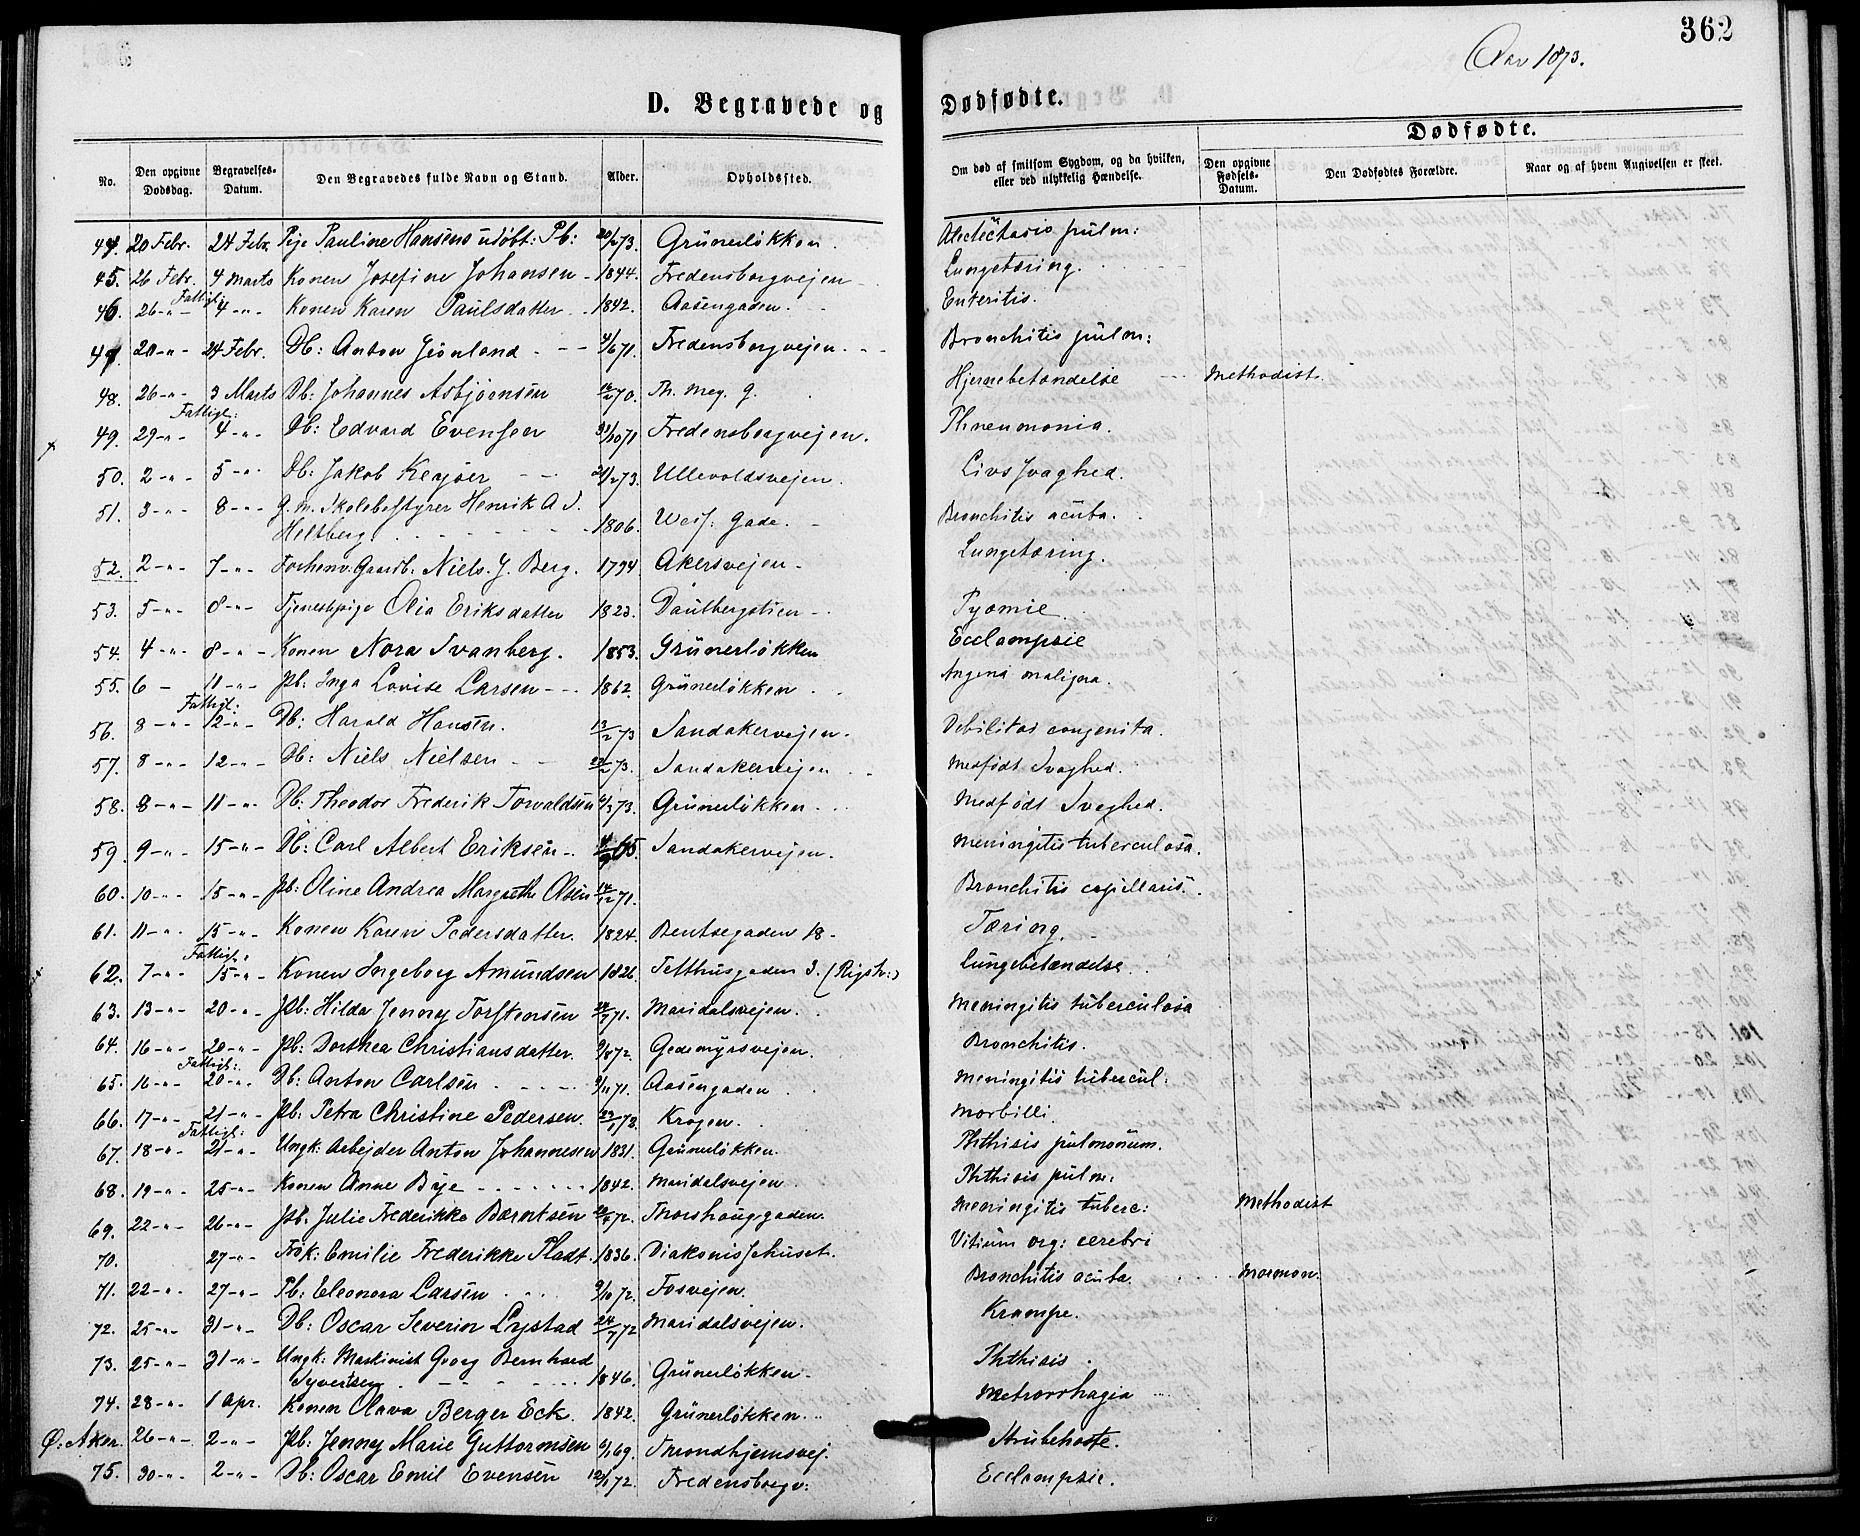 362
Aar 1873.
D. Begravede og Dødfødte.
Dødfødte.
No. Den opgivne Dødsdag. Begravelses-Datum. Den Begravedes fulde Navn og Stand. Alder. Opholdsfted. Om død af smitsom Sygdom, og da hvilken, eller ved ulykkelig Hændelse. Den opgivne Fødsels-Datum. Den Dødfødtes Forældre. Naar og af hvem Angivelsen er skeet.
44. 20 Febr. 24 Febr. Pige Pauline Hansens udøbt: Pb: 20/2 73. Grünerløkken. pulm:
45. 26 Febr. 4 Marts Konen Josefine Johansen - 1844. Fredensborgvejen - Lungetæring.
Fattigl:
46. 26 -"- 4 -"- Konen Karen Paulsdatter - 1842. Aasengaden. Enteritis.
47. 20 -"- 24 Febr. Db: Anton Grönland - 4/6 71. Fredensborgvejen. Bronchitis pulm:
48. 26 -"- 3 Marts Db: Johannes Asbjørnsen 70. Th. Mey. g. Hjernebetændelse Methodist.
Fattigl:
49. 29 -"- 4 -"- Db: Edvard Evensen 31/10 71 Fredensborgvejen. Pneumonia.
50. 2 -"- 5 -"- Db: Jakob Keyser 21/2 73. Ullevoldsvejen. Livssvaghed.
51. 3 -"- 8 -"- g. m. Skolebestyrer Henrik A. S.
Heltberg. 1806. Wess: Gade. Bronchitis acuta.
52. 2 -"- 7 -"- Forhenv: Gaardb. Niels. J. Berg. 1794 Akersvejen - Lungetæring.
53. 5 -"- 8 -"- Tjenestpige Olia Eriksdatter 1823. Dautbergstien - Pyæmie
54. 4 -"- 8 -"- Konen Nora Svanberg. 1853. Grünerløkken Ecclampsie
55. 6 - 11 -"- Pb: Inga Lovise Larsen - 1862. Grünerløkken. Angina maligna.
Fattigl:
56. 8 -"- 12 -"- Db: Harald Hansen. 13/2 73 Sandakervejen. Debilitas congenita.
57. 8 -"- 12 -"- Db: Niels Nielsen 73. Sandakervejen Medfødt Svaghed.
58. 8 -"- 11 -"- Db: Theodor Frederik Torvaldsen /3 73. Grünerløkken. Medfødt Svaghed.
59. 9 -"- 15 -"- Db: Carl Albert Eriksen - 65. Sandakervejen. Meningitis tuberculosa.
60. 10 -"- 15 -"- Pb: Oline Andrea Margrethe Olsen 14/12 71. Bronchitis capillaris.
61. 11 -"- 15 -"- Konen Karen Pedersdatter. 1824. Bentsegaden 18 - Tæring.
Fattigl:
62. 7 -"- 15 -"- Konen Ingeborg Amundsen 1826. Telthusgaden 3. (Rigsh:) Lungebetændelse
63. 13 -"- 20 -"- Pb: Hilda Jenny Torstensen 71. Maridalsvejen. Meningitis tuberculosa
64. 16 -"- 20 -"- Pb: Dorthea Christiansdatter. 9/8 72. Gedemyrsvejen. Bronchitis.
Fattigl:
65. 16 -"- 20 -"- Db: Anton Carlsen 9/11 71. Aasengaden Meningitis tubercul:
66. 17 -"- 21 -"- Pb: Petra Christine Pedersen. Krogen. Morbilli
Fattigl:
67. 18 -"- 21 -"- Ungk: Arbejder Anton Johannesen 1831. Grünerløkken. Phthisis pulmonum.
68. 19 -"- 25 -"- Konen Anne Bye 1842. Maridalsvejen Phthisis pulm:
69. 22 -"- 26 -"- Pb: Julie Frederikke Bærntsen 72. Thorshauggaden. Meningitis tuberc: Methodist
70. 27 -"- Frøk: Emilie Frederikke Pladt. 1836. Diakonissehuset. Vitium org: cerebri
71. 22 -"- 27 -"- Pb: Eleonora Larsen 9/10 72. Fosvejen. Bronchitis acuta. Mormon.
72. 25 -"- 31 -"- Db: Oscar Severin Lystad 24/7 72 Maridalsvejen. Krampe.
73. 25 -"- 31 -"- Ungk: Maskinist Georg Bernhard
Syvertsen 1846. Grünerløkken. Phthisis
74. 28 -"- 1 Apr. Konen Olava Berger Eck. 1842. Grünerløkken. Metrorrhagia
Ø: Aker. 26 -"- 2 -"- Pb: Jenny Marie Guttormsen 69. Throndhjemsvej. Strubehoste.
75. 30 -"- 2 -"- Db: Oscar Emil Evensen 72. Fredensborgv: Ecclampsie.